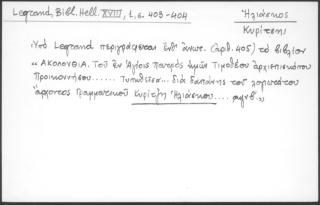 Legrand, Bibl. Hell. XVIII, 1, σ. 403-404
Ἡλιάσκος
Κυρίτσης
Ὑπὸ Legrand περιγράφεται ἔνθ' ἀνωτ. (ἀρθ. 405) τὸ βιβλίον
"ΑΚΟΛΟΥΘΙΑ. Τοῦ ἐν Ἁγίοις Πατρὸς ἡμῶν Τιμοθέου ἀρχιεπισκόπου
Προικονήσου...... Τυπωθεῖσα... διὰ δαπάνης τοῦ
ἄρχοντος Γραμματικοῦ Κυρίτζη Ἡλιάσκου....